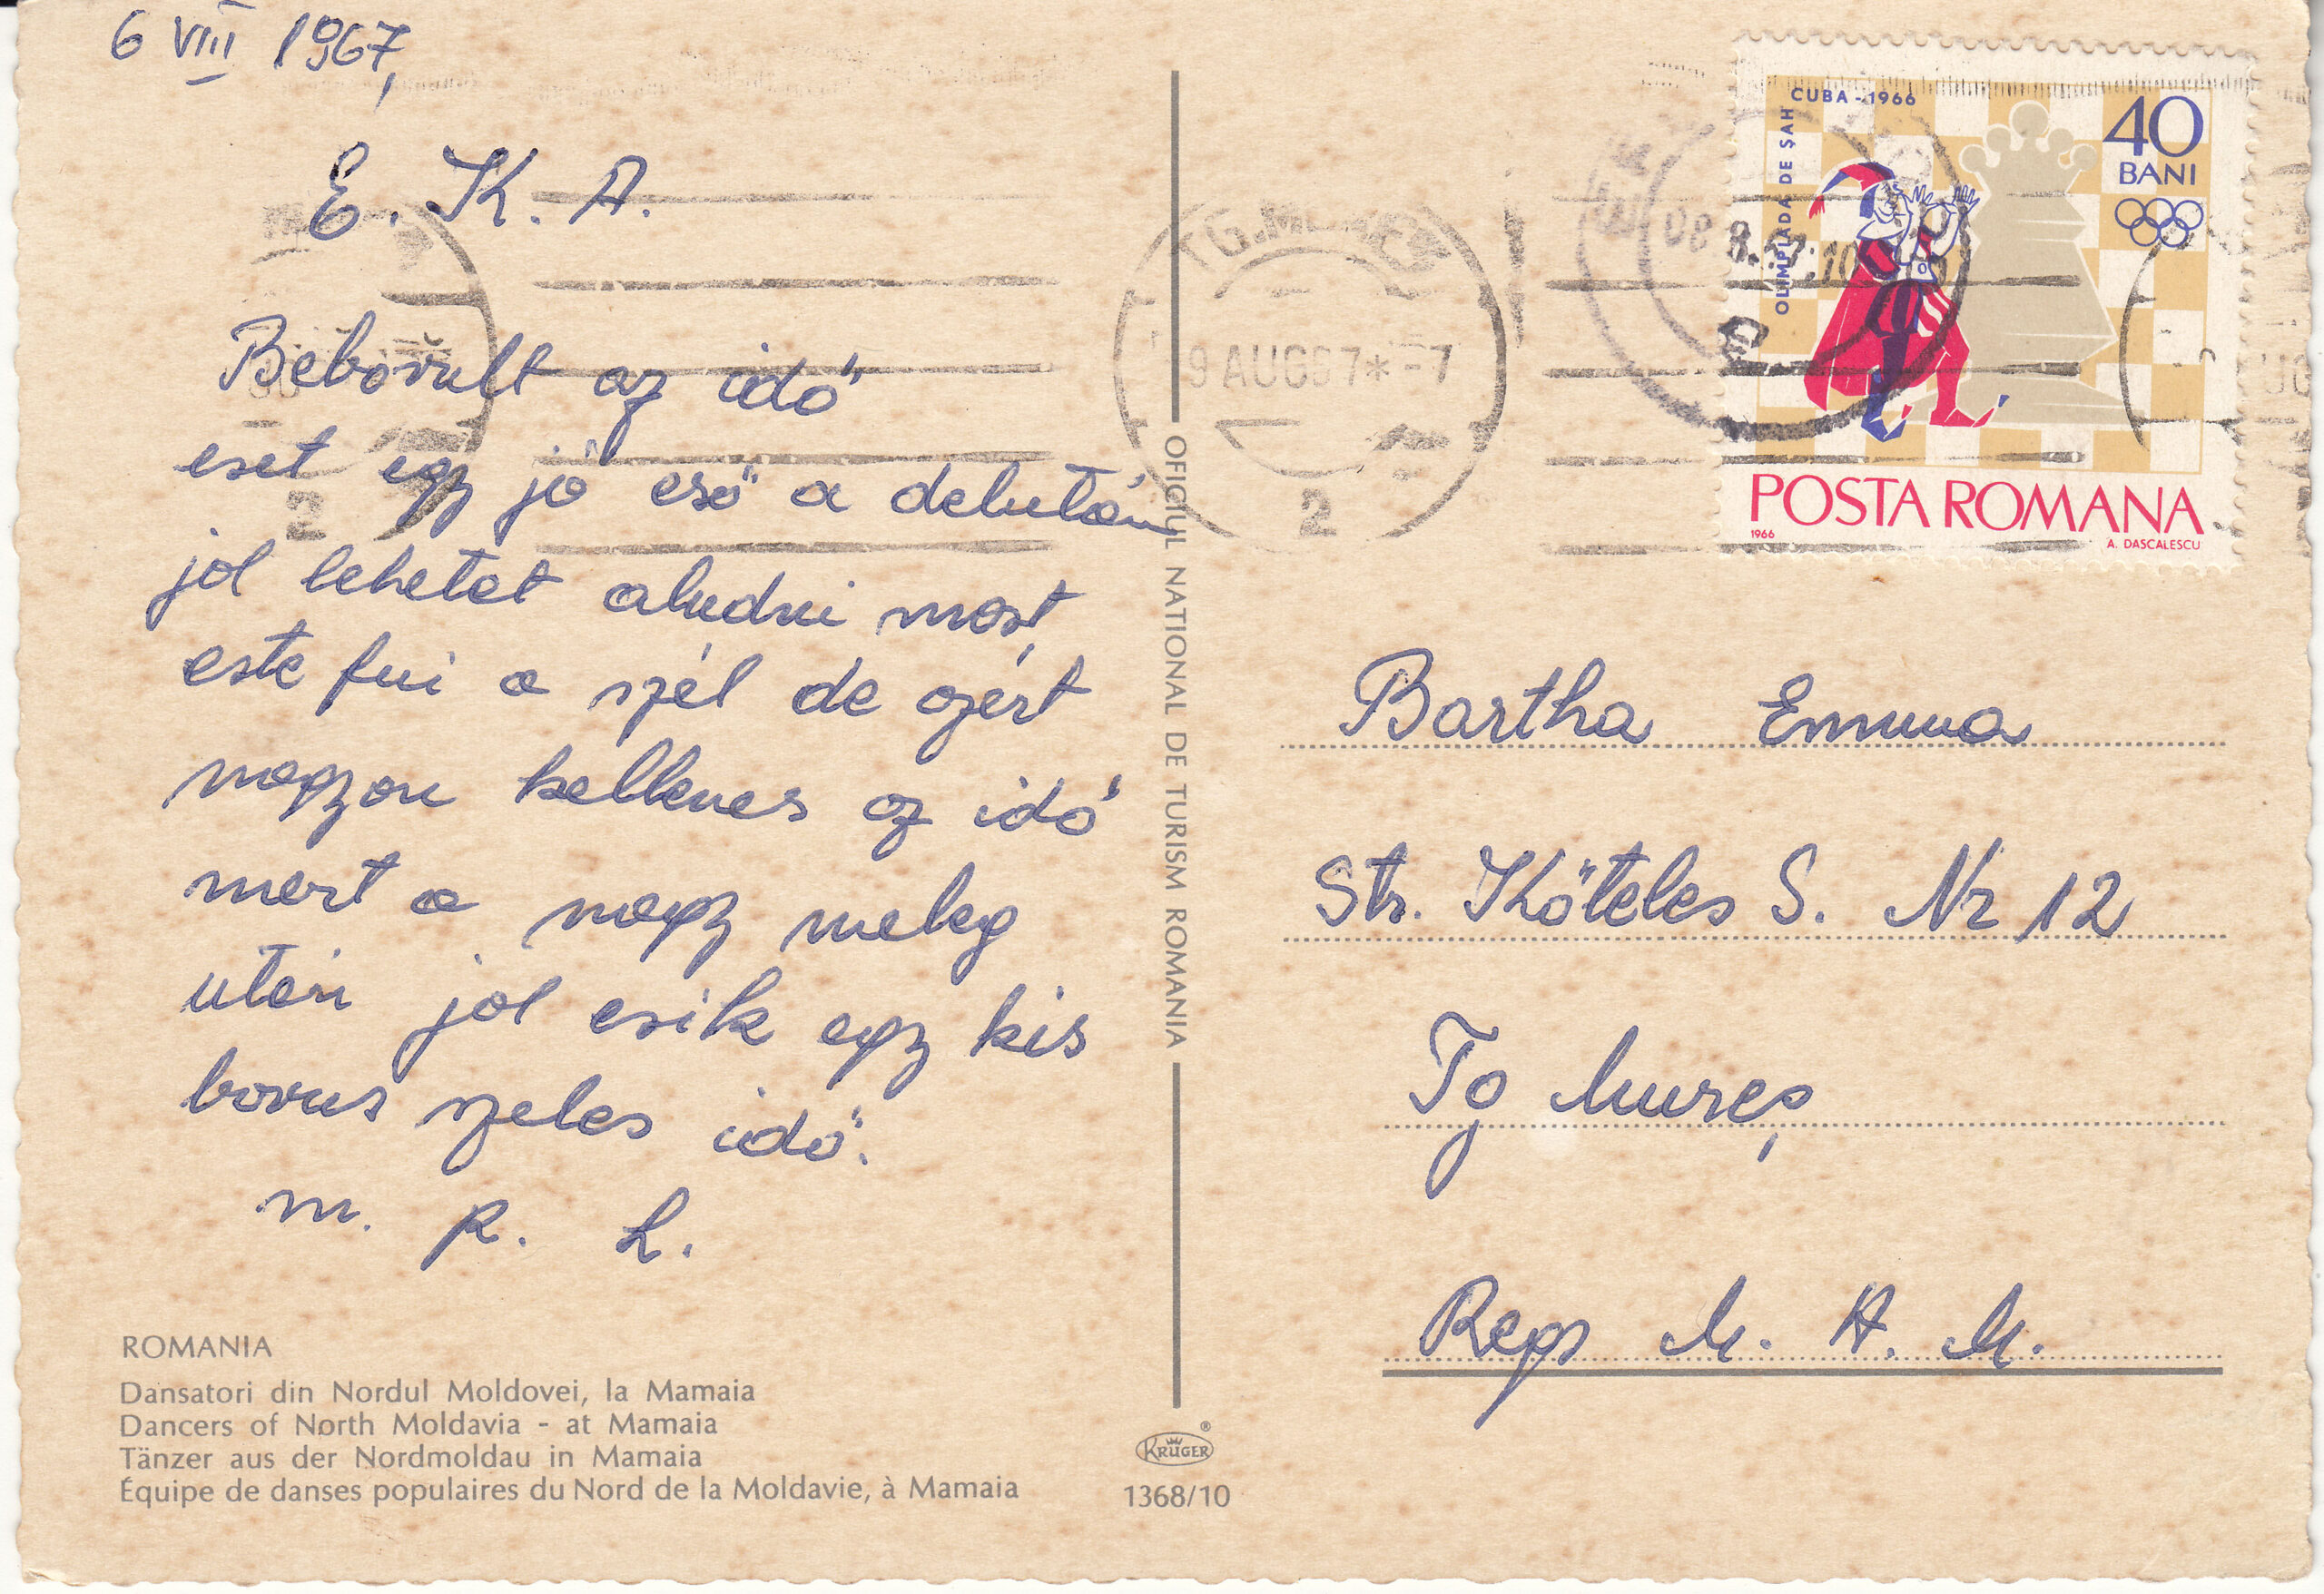 6 VIII 1967,
E. K. A.
Beborult az idő
eset egy jó eső a delután
jol lehetet aludni most
este fui a szél de azért
nagyon kellemes az idő
mert a nagy meleg
utan jol esik egy kis
borus szeles idő.
m. R. L.
ROMANIA
Dansatori din Nordul Moldovei, la Mamaia
Dancers of North Moldavia - at Mamaia
Tänzer aus der Nordmoldau in Mamaia
Équipe de danses populaires du Nord de la Moldavie, à Mamaia
OFICIUL NATIONAL DE TURISM ROMANIA
KRÜGER
1368/10
9 AUG67*-7
2
2
CUBA-1966
OLIMPIADA DE ȘAH
40
BANI
POSTA ROMANA
1966
A. DASCALESCU
Bartha Emma
Str. Köteles S. Nr 12
Tg Mureș
Reg M. A. M.